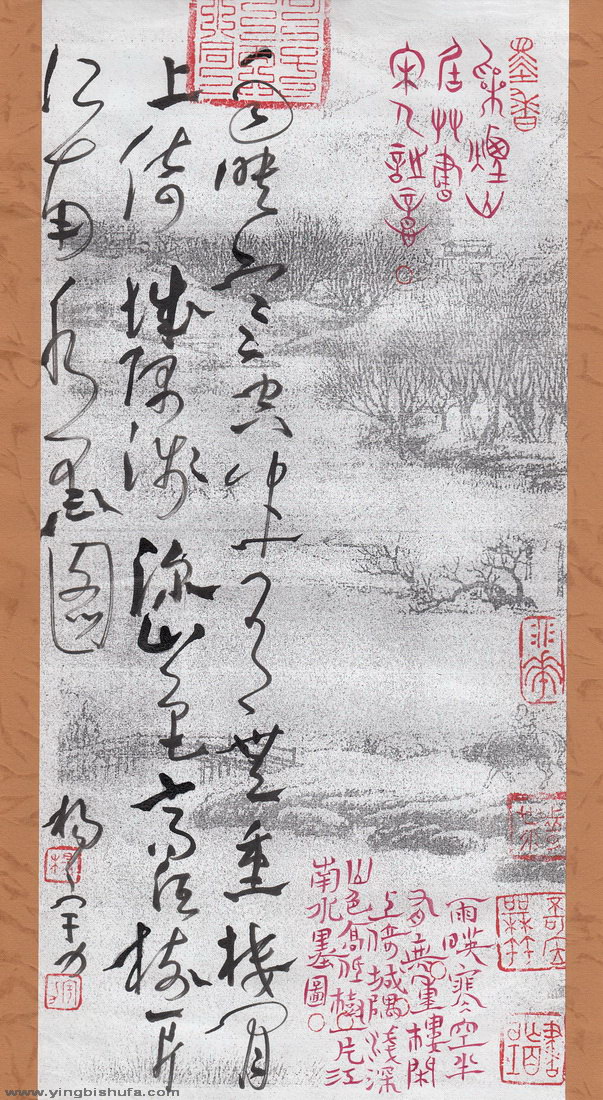 煙山
居草書
宋人詩意
雨映寒空半有無重樓閒
上倚城隅淺深山色高低樹一片
江南水墨圖
雨暎寒空半
有無重樓閑
上倚城隅淺深
山色高低樹一片江
南水墨圖
www.yingbishufa.com